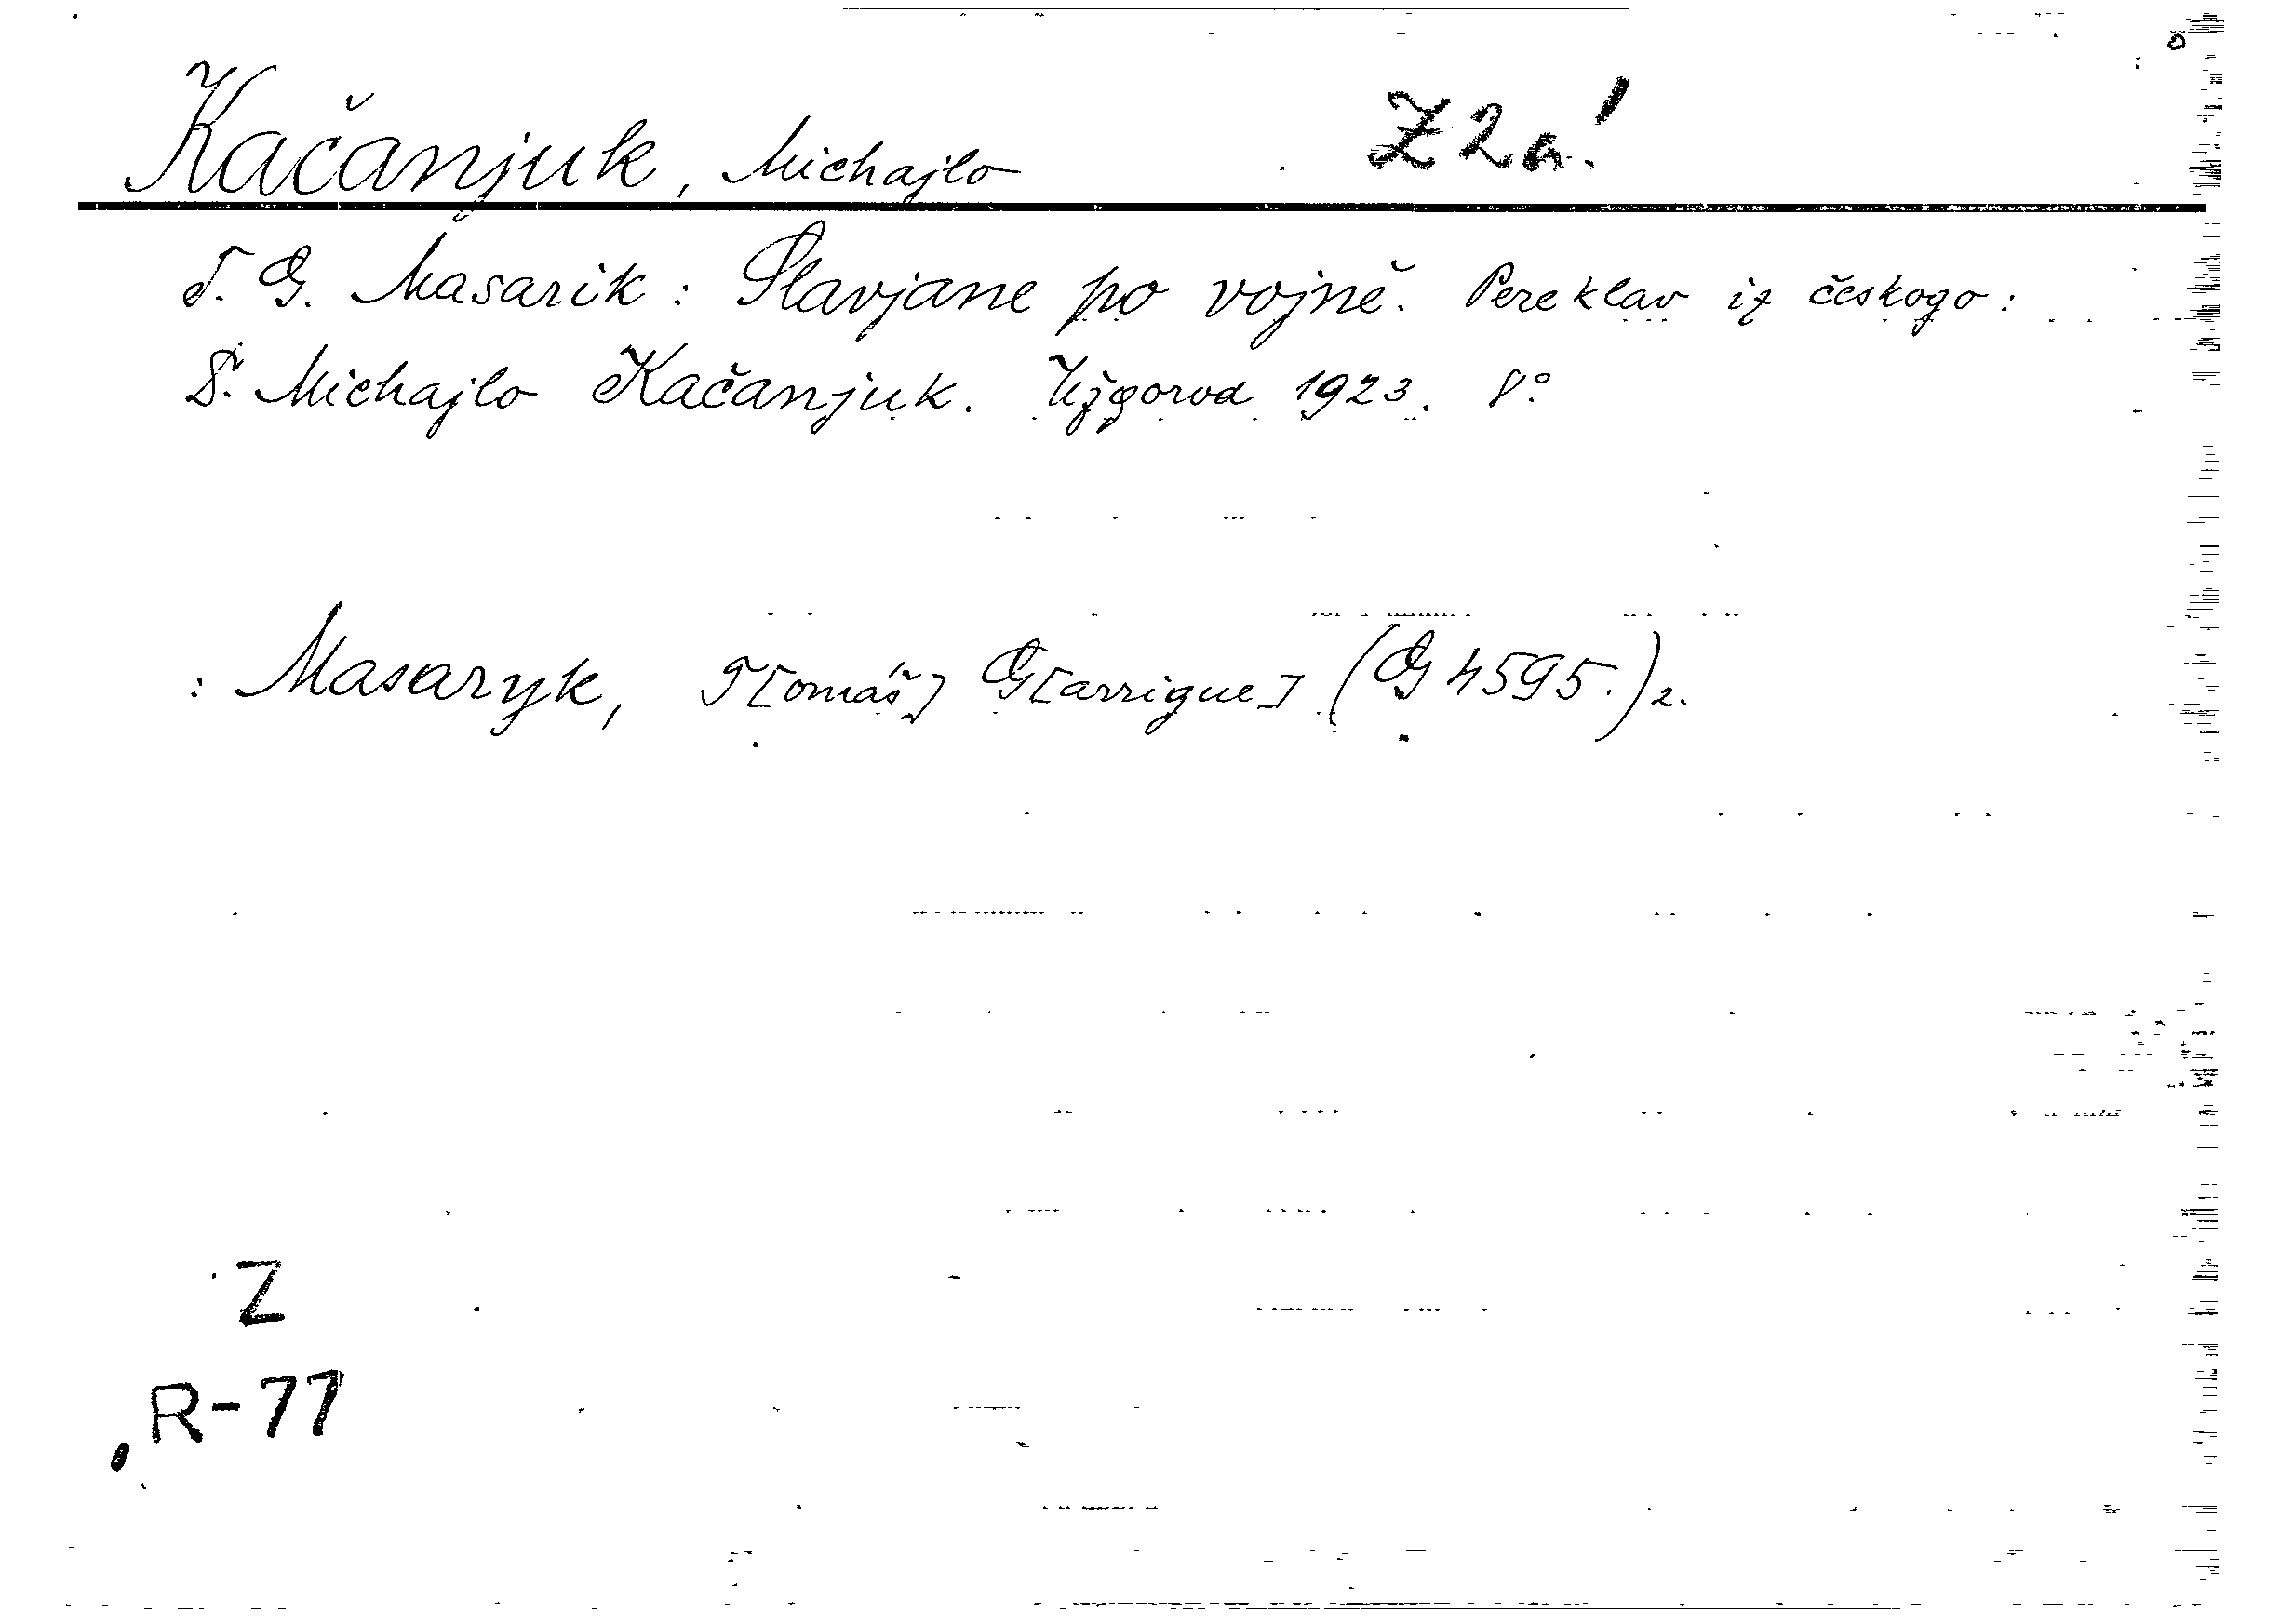 Kačanjuk, Michajlo Z2a!
T. G. Masarik: Slavjane po vojně. Pereklav iz českogo:
D. Michajlo Kačanjuk. Užgorod 1923. 8°
: Masaryk, T[omáš] G[arrigue] (G 4595.) 2.
Z
R-77